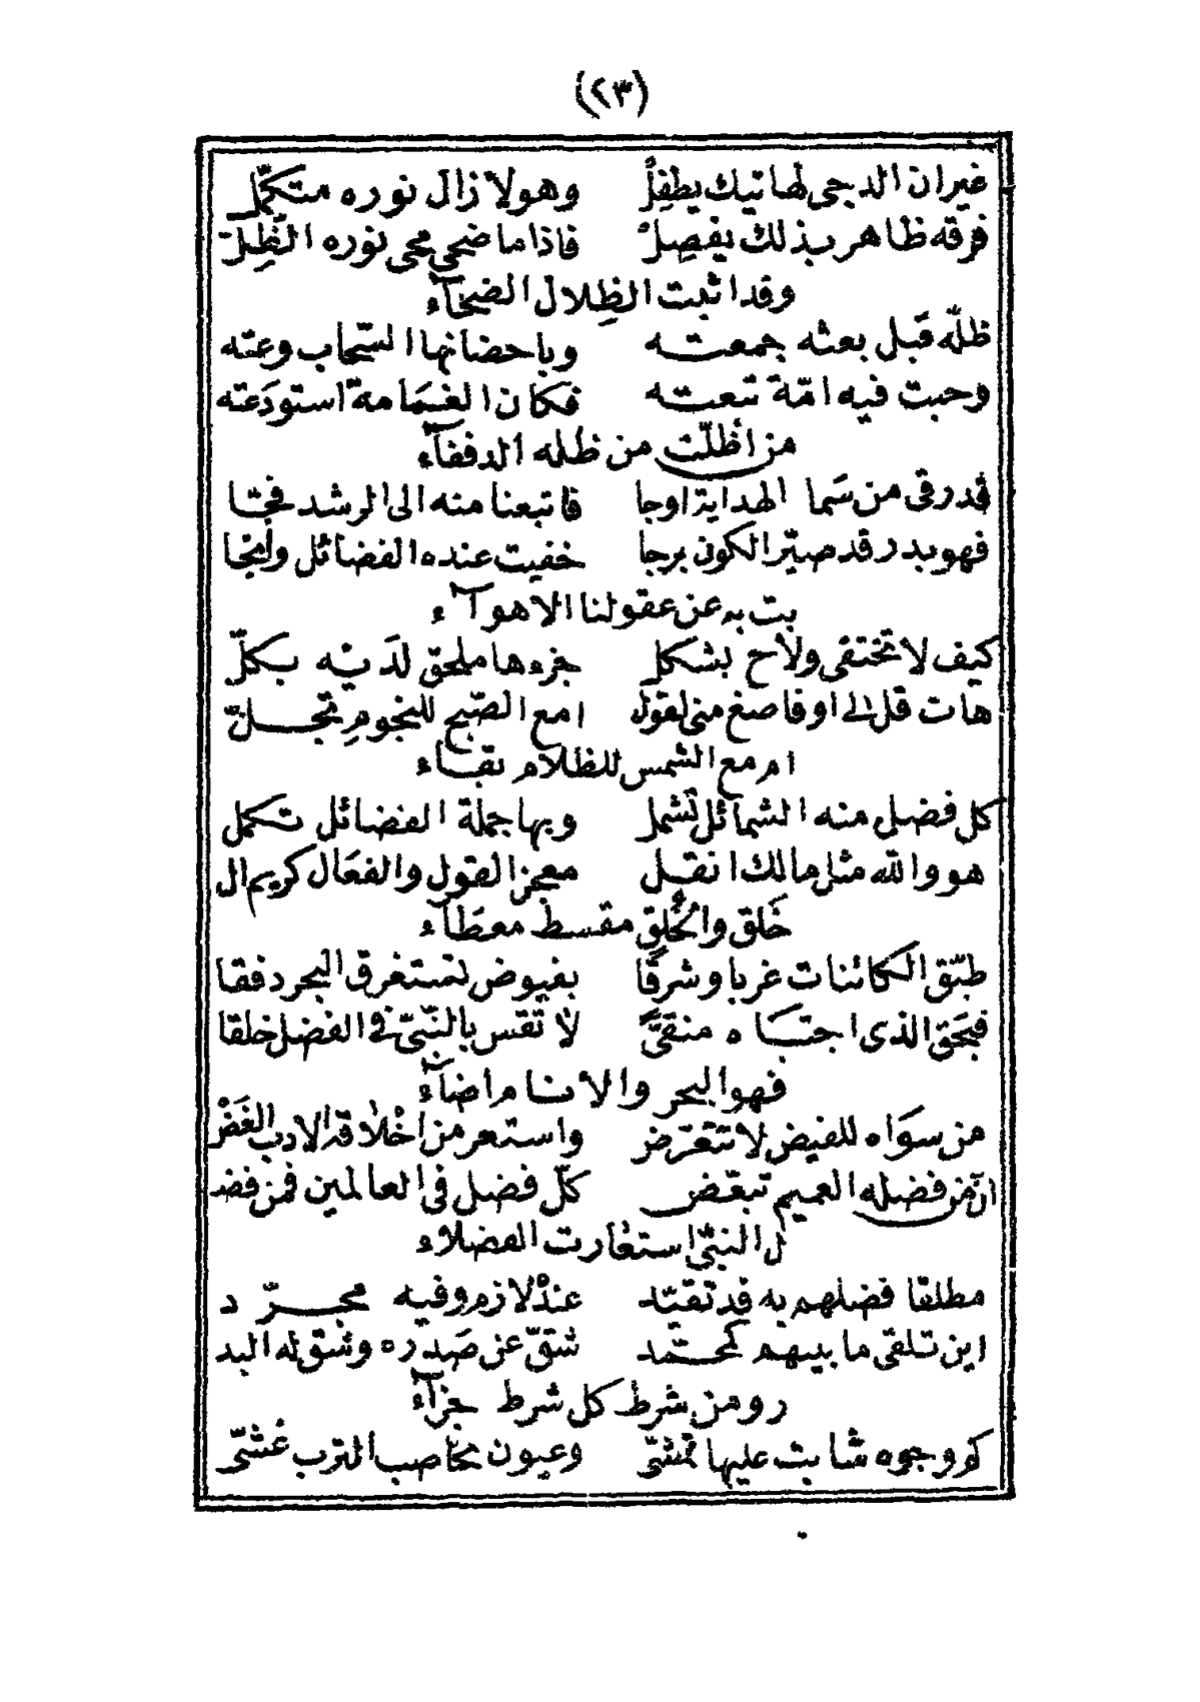 (٢٣)
غير ان الدجى لهاتيك يطفلُ وهو لا زال نوره متكمّل
فرقه ظاهر بذلك يفصلْ فاذا ما ضحى محى نوره الظّلّ
وقد اثبت الظِلال الضحآء
ظلّه قبل بعثه جمعته وباحضانها السّحاب وعته
وحبت فيه امّة تبعته فكان الغمامة استودَعته
من أظلّت من ظله الدففآء
قد رقى من سَما الهداية اوجا فاتبعنا منه الى الرشد فجّا
فهو بدر قد صيّر الكون برجا خفيت عنده الفضائل وانجا
بت به عن عقولنا الاهوآء
كيف لا تختفى ولاح بشكل جزءها ملحق لدَيْه بكلّ
هات قل لى او فاصغ منى لقول امع الصّبح للنجومِ تجلّ
ام مع الشمس للظلام بقاء
كل فضل منه الشمائل تشمل وبها جملة الفضائل تكمل
هو والله مثل مالك انقل معجز القول والفعَال كريم ال
خَلق والخُلق مقسط معطاء
طبّق الكائنات غربا وشرقًا بفيوض تستغرق البحر دفقا
فبحق الذى اجتباه منقىًّ لا تقس بالنّبىّ فى الفضل خلقا
فهو البحر والأنام اضآء
من سوَاه للفيض لا تتعرّض واستعر من اخْلاقه الادب الغَضْ
ان من فضله العميم تبعّض كلّ فضل فى العالمين فمن فضـ
ل النبىّ استعارت الفضلاء
مطلقا فضلهم به قد تقيّد عندْ لازم وفيه مجرّد
اين تلقى ما بينهم كمحمّد شقّ عن صَدره وشق له البد
ر ومن شرط كل شرط جزآء
كم وجوه شابت عليها تمشّى وعيون مخاصب الترب غشّى